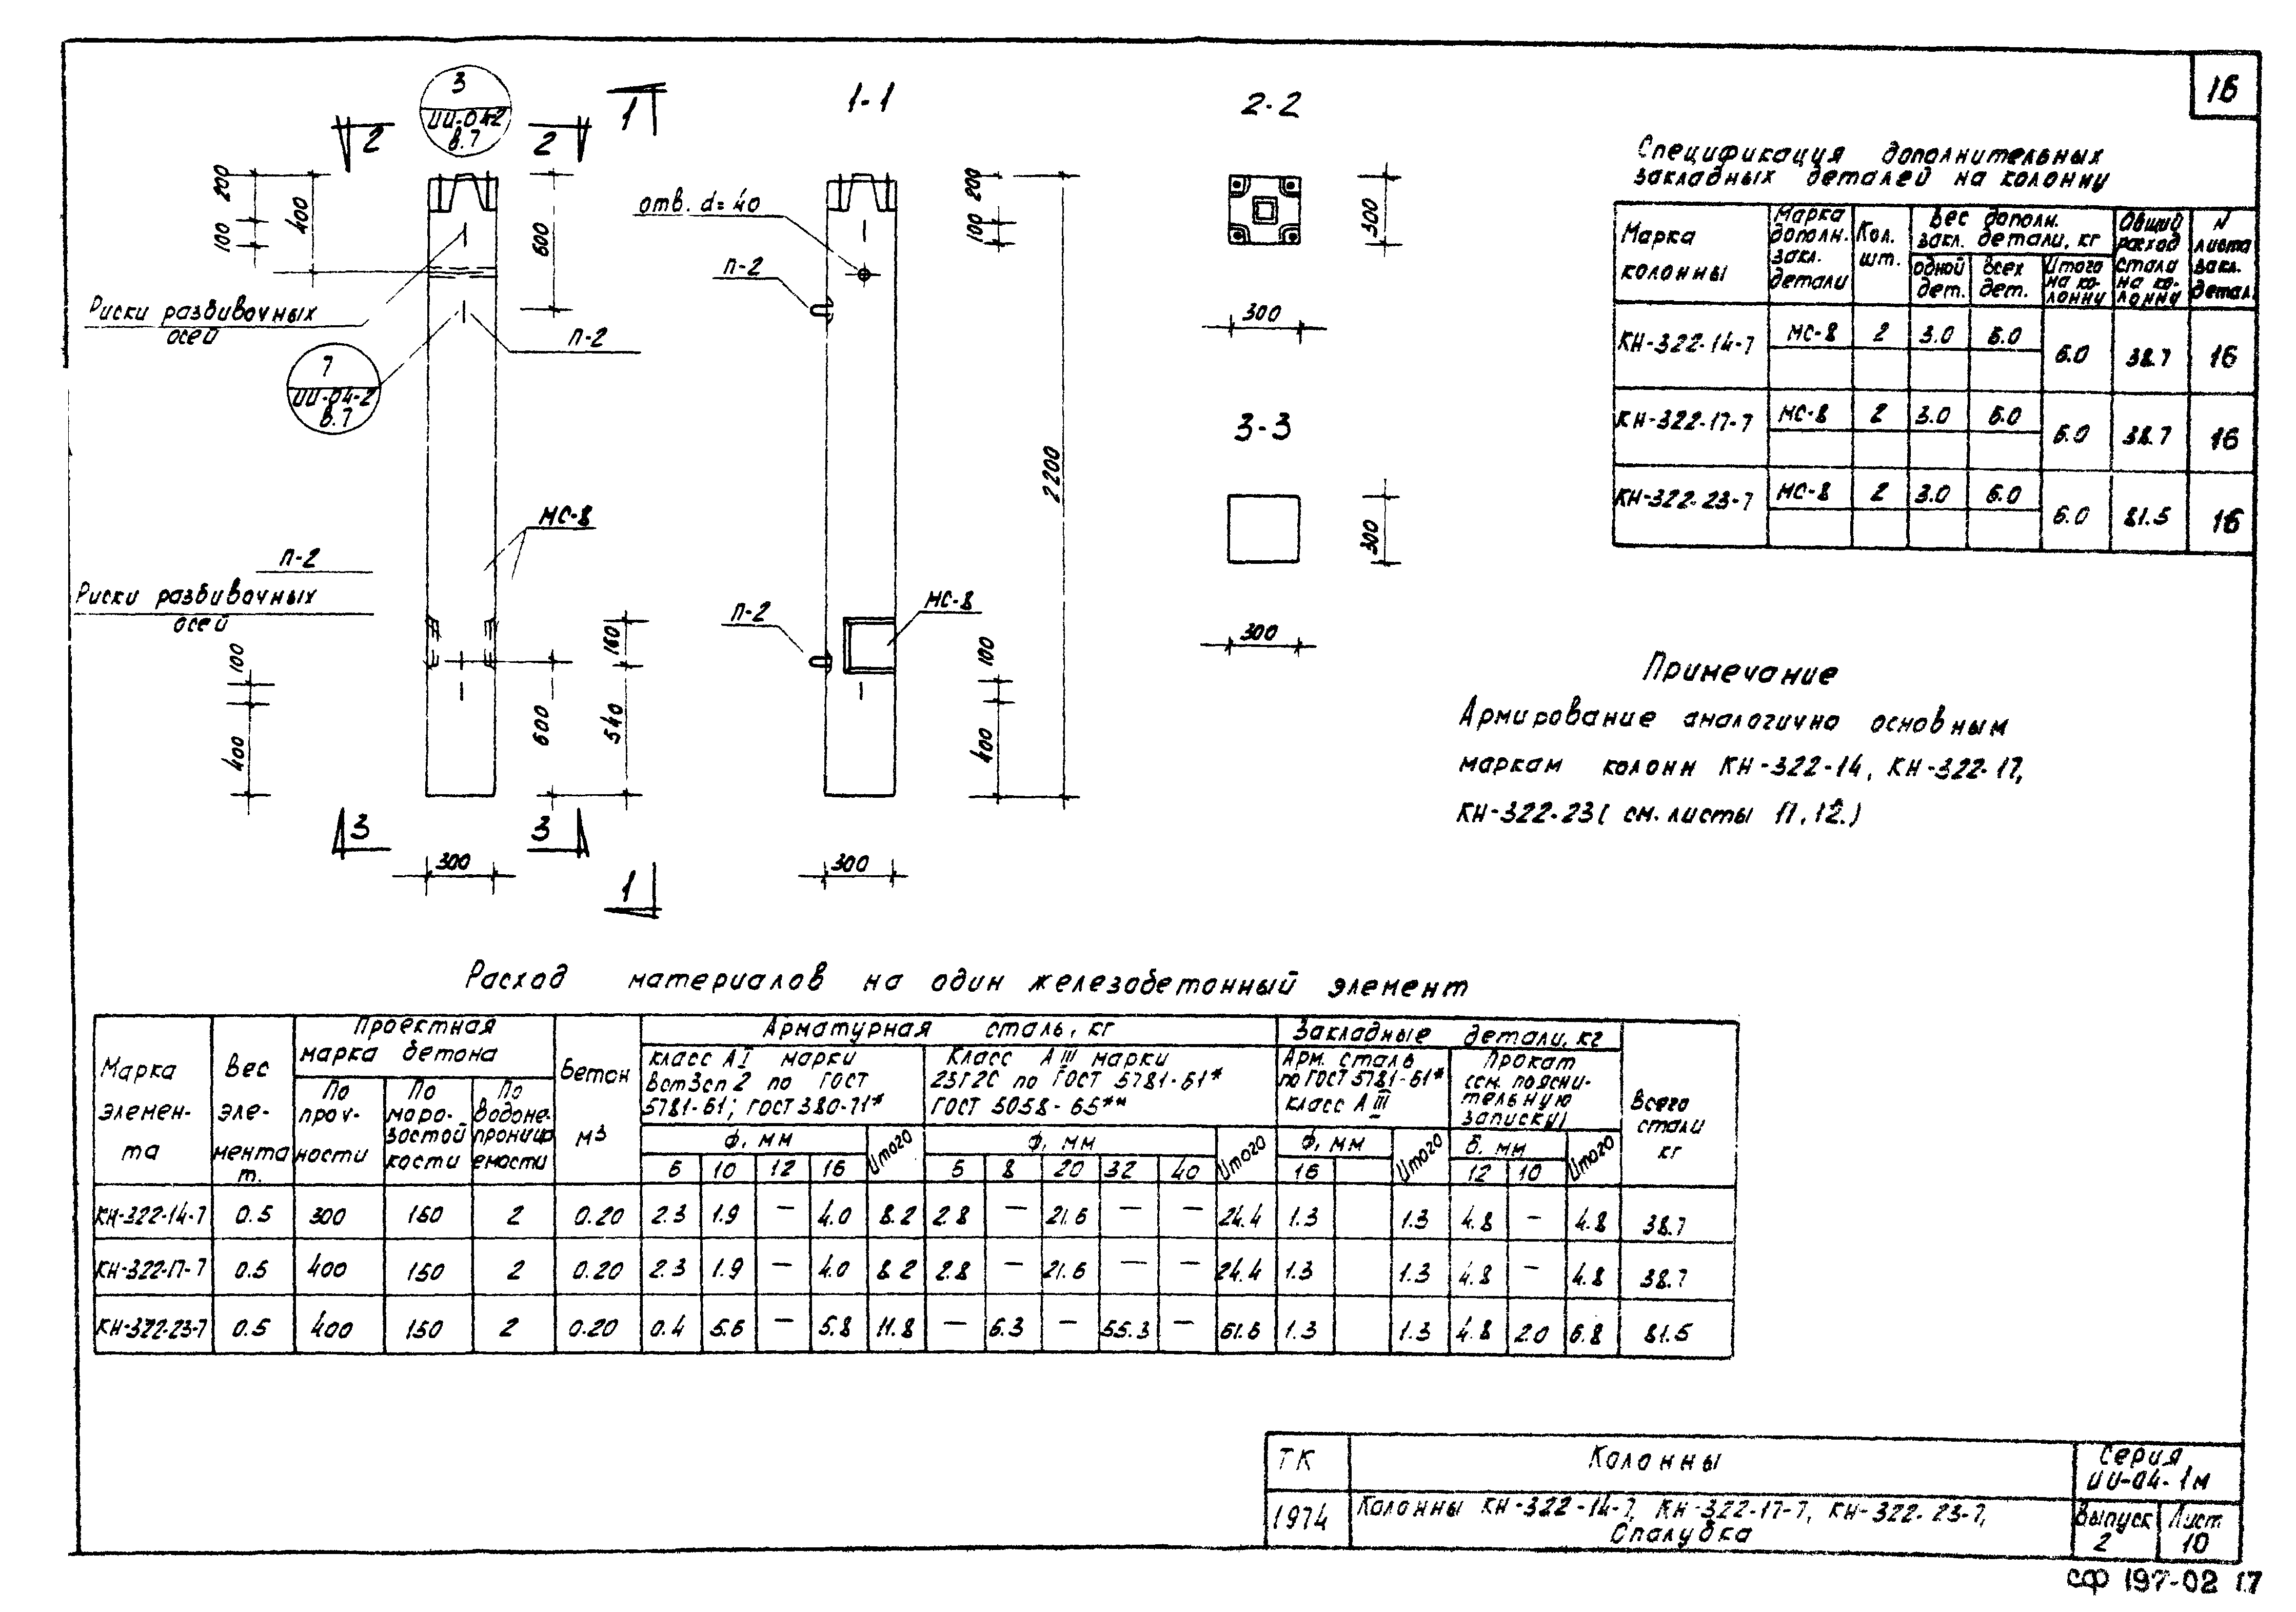 16
3
ИИ-04-2
в.7
2 2
1
1-1
2-2
200
100
400
600
отв. d=40
П-2
Риски разбивочных
осей
П-2
7
ИИ-04-2
в.7
200
100
300
300
3-3
2200
МС-8
П-2
Риски разбивочных
осей
100
400
160
600
540
П-2
МС-8
100
400
300
300
3 3
300
1
300
Спецификация дополнительных
закладных деталей на колонну
Марка колонны
Марка дополн. закл. детали
Кол. шт.
Вес дополн. закл. детали, кг
одной дет.
Всех дет.
Итого на колонну
Общий расход стала на колонну
N листа закл. детал.
КН-322-14-7 МС-8 2 3.0 6.0 6.0 38.7 16
КН-322-17-7 МС-8 2 3.0 6.0 6.0 38.7 16
КН-322-23-7 МС-8 2 3.0 6.0 6.0 81.5 16
Примечание
Армирование аналогично основным
маркам колонн КН-322-14, КН-322-17,
КН-322-23 ( см. листы 11, 12.)
Расход материалов на один железобетонный элемент
Марка элемента
Вес элемента т.
Проектная марка бетона
По прочности
По морозостойкости
По водонепроницаемости
Бетон м3
Арматурная сталь, кг
класс АI марки
Вст3сп2 по ГОСТ
5781-61; ГОСТ 380-71*
Класс АIII марки
25Г2С по ГОСТ 5781-61*
ГОСТ 5058-65**
Закладные детали, кг
Арм. сталь
по ГОСТ 5781-61*
класс АIII
Прокат
(см. поясни-
тельную
записку)
Всего стали кг
ф, мм Итого ф, мм Итого ф, мм Итого б, мм Итого
6 10 12 16 6 8 20 32 40 16 12 10
КН-322-14-7 0.5 300 150 2 0.20 2.3 1.9 — 4.0 8.2 2.8 — 21.6 — — 24.4 1.3 1.3 4.8 — 4.8 38.7
КН-322-17-7 0.5 400 150 2 0.20 2.3 1.9 — 4.0 8.2 2.8 — 21.6 — — 24.4 1.3 1.3 4.8 — 4.8 38.7
КН-322-23-7 0.5 400 150 2 0.20 0.4 5.6 — 5.8 11.8 — 6.3 — 55.3 — 61.6 1.3 1.3 4.8 2.0 6.8 81.5
ТК
Колонны
Серия
ИИ-04-1м
1974
Колонны КН-322-14-7, КН-322-17-7, КН-322-23-7,
Опалубка
Выпуск
2
Лист
10
СФ 197-02 17